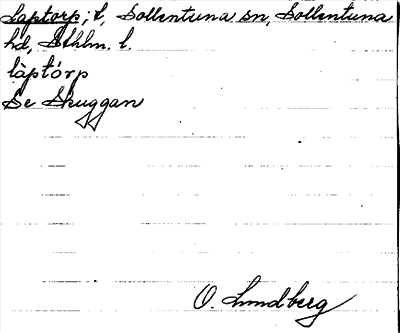 Laptorp; t, Sollentuna sn, Sollentuna
hd, Sthlm. l.
làptórp
Se Skuggan
O. Lundberg